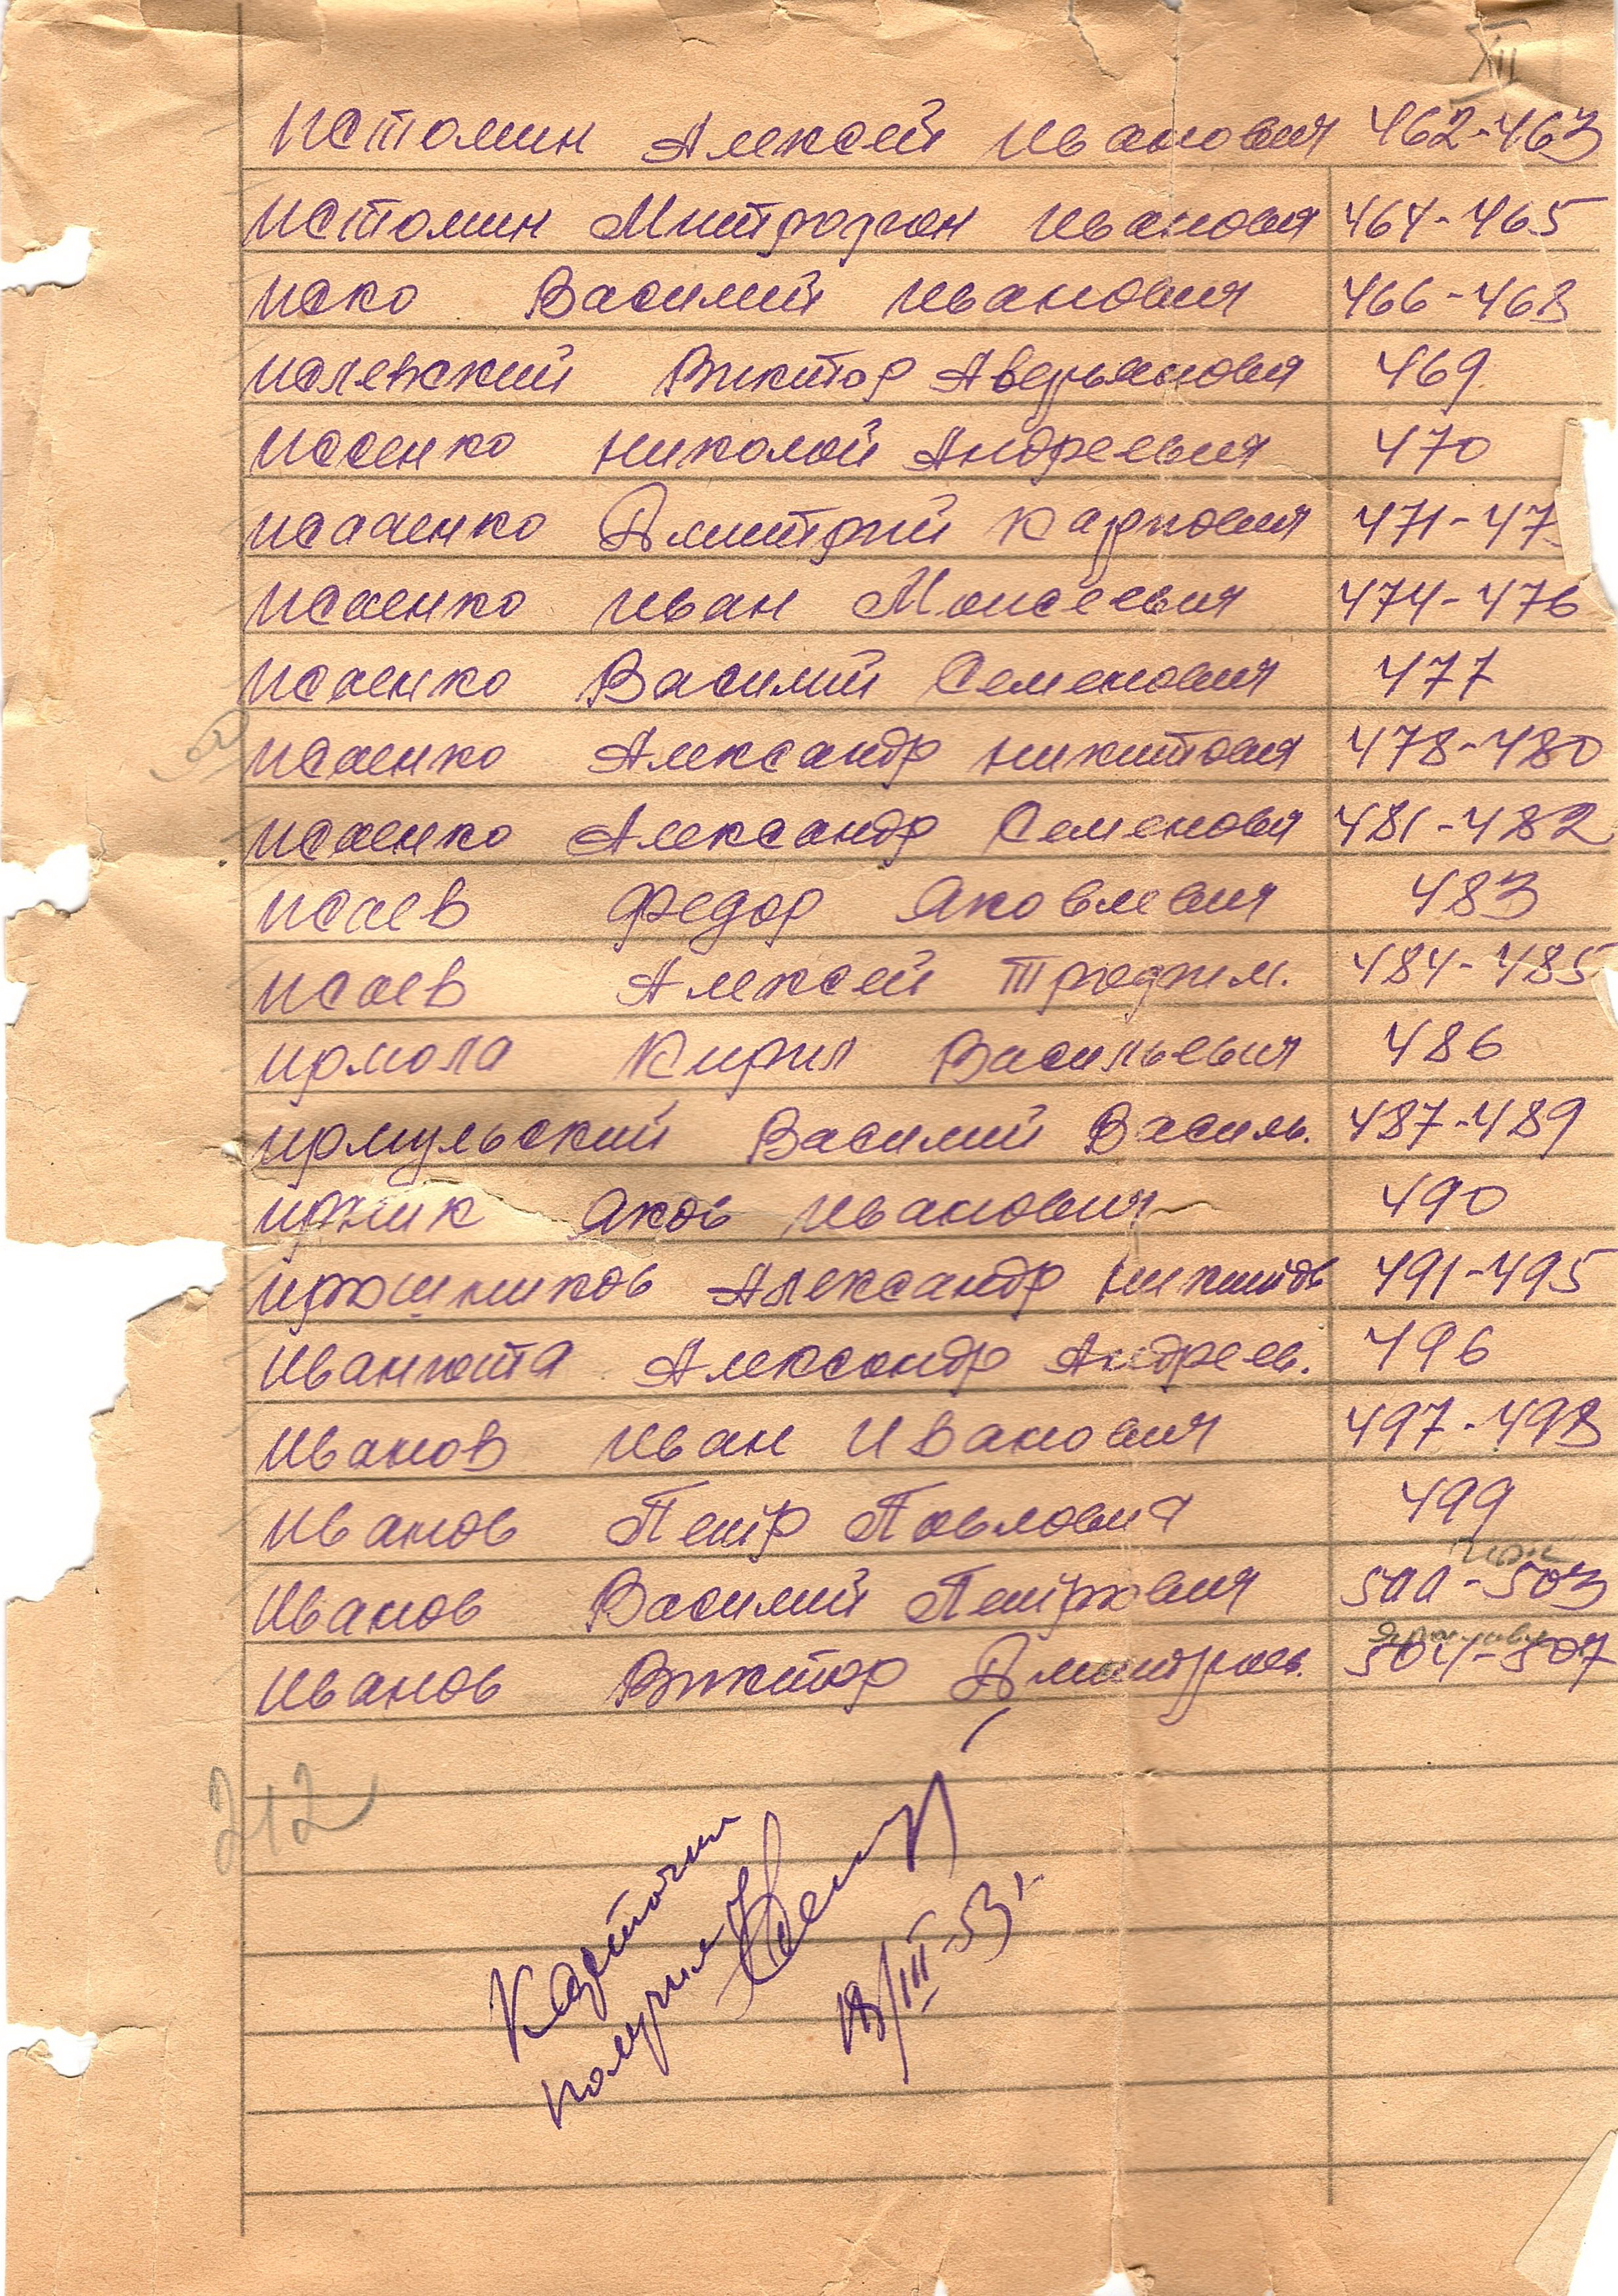 XII
Истомин Алексей Иванович 462-463
Истомин Митрофан Иванович 464-465
Иско Василий Иванович 466-468
Ислевский Виктор Аверьянович 469
Исаенко Николай Андреевич 470
Исаенко Дмитрий Карпович 471-47
Исаенко Иван Моисеевич 474-476
Исаенко Василий Семенович 477
Исаенко Александр Никитович 478-480
Исаенко Александр Семенович 481-482
Исаев Федор Яковлевич 483
Исаев Алексей Трофим. 484-485
Ирмола Кирил Васильевич 486
Ирмульский Василий Василь. 487-489
Иржик Яков Иванович 490
Ирошников Александр Никитов 491-495
Иванюта Александр Андреев. 496
Иванов Иван Иванович 497-498
Иванов Петр Павлович 499
Иванов Василий Петрович 500-503
Иванов Виктор Дмитриев. 504-507
212
Карточки
получил
18/III-53г.